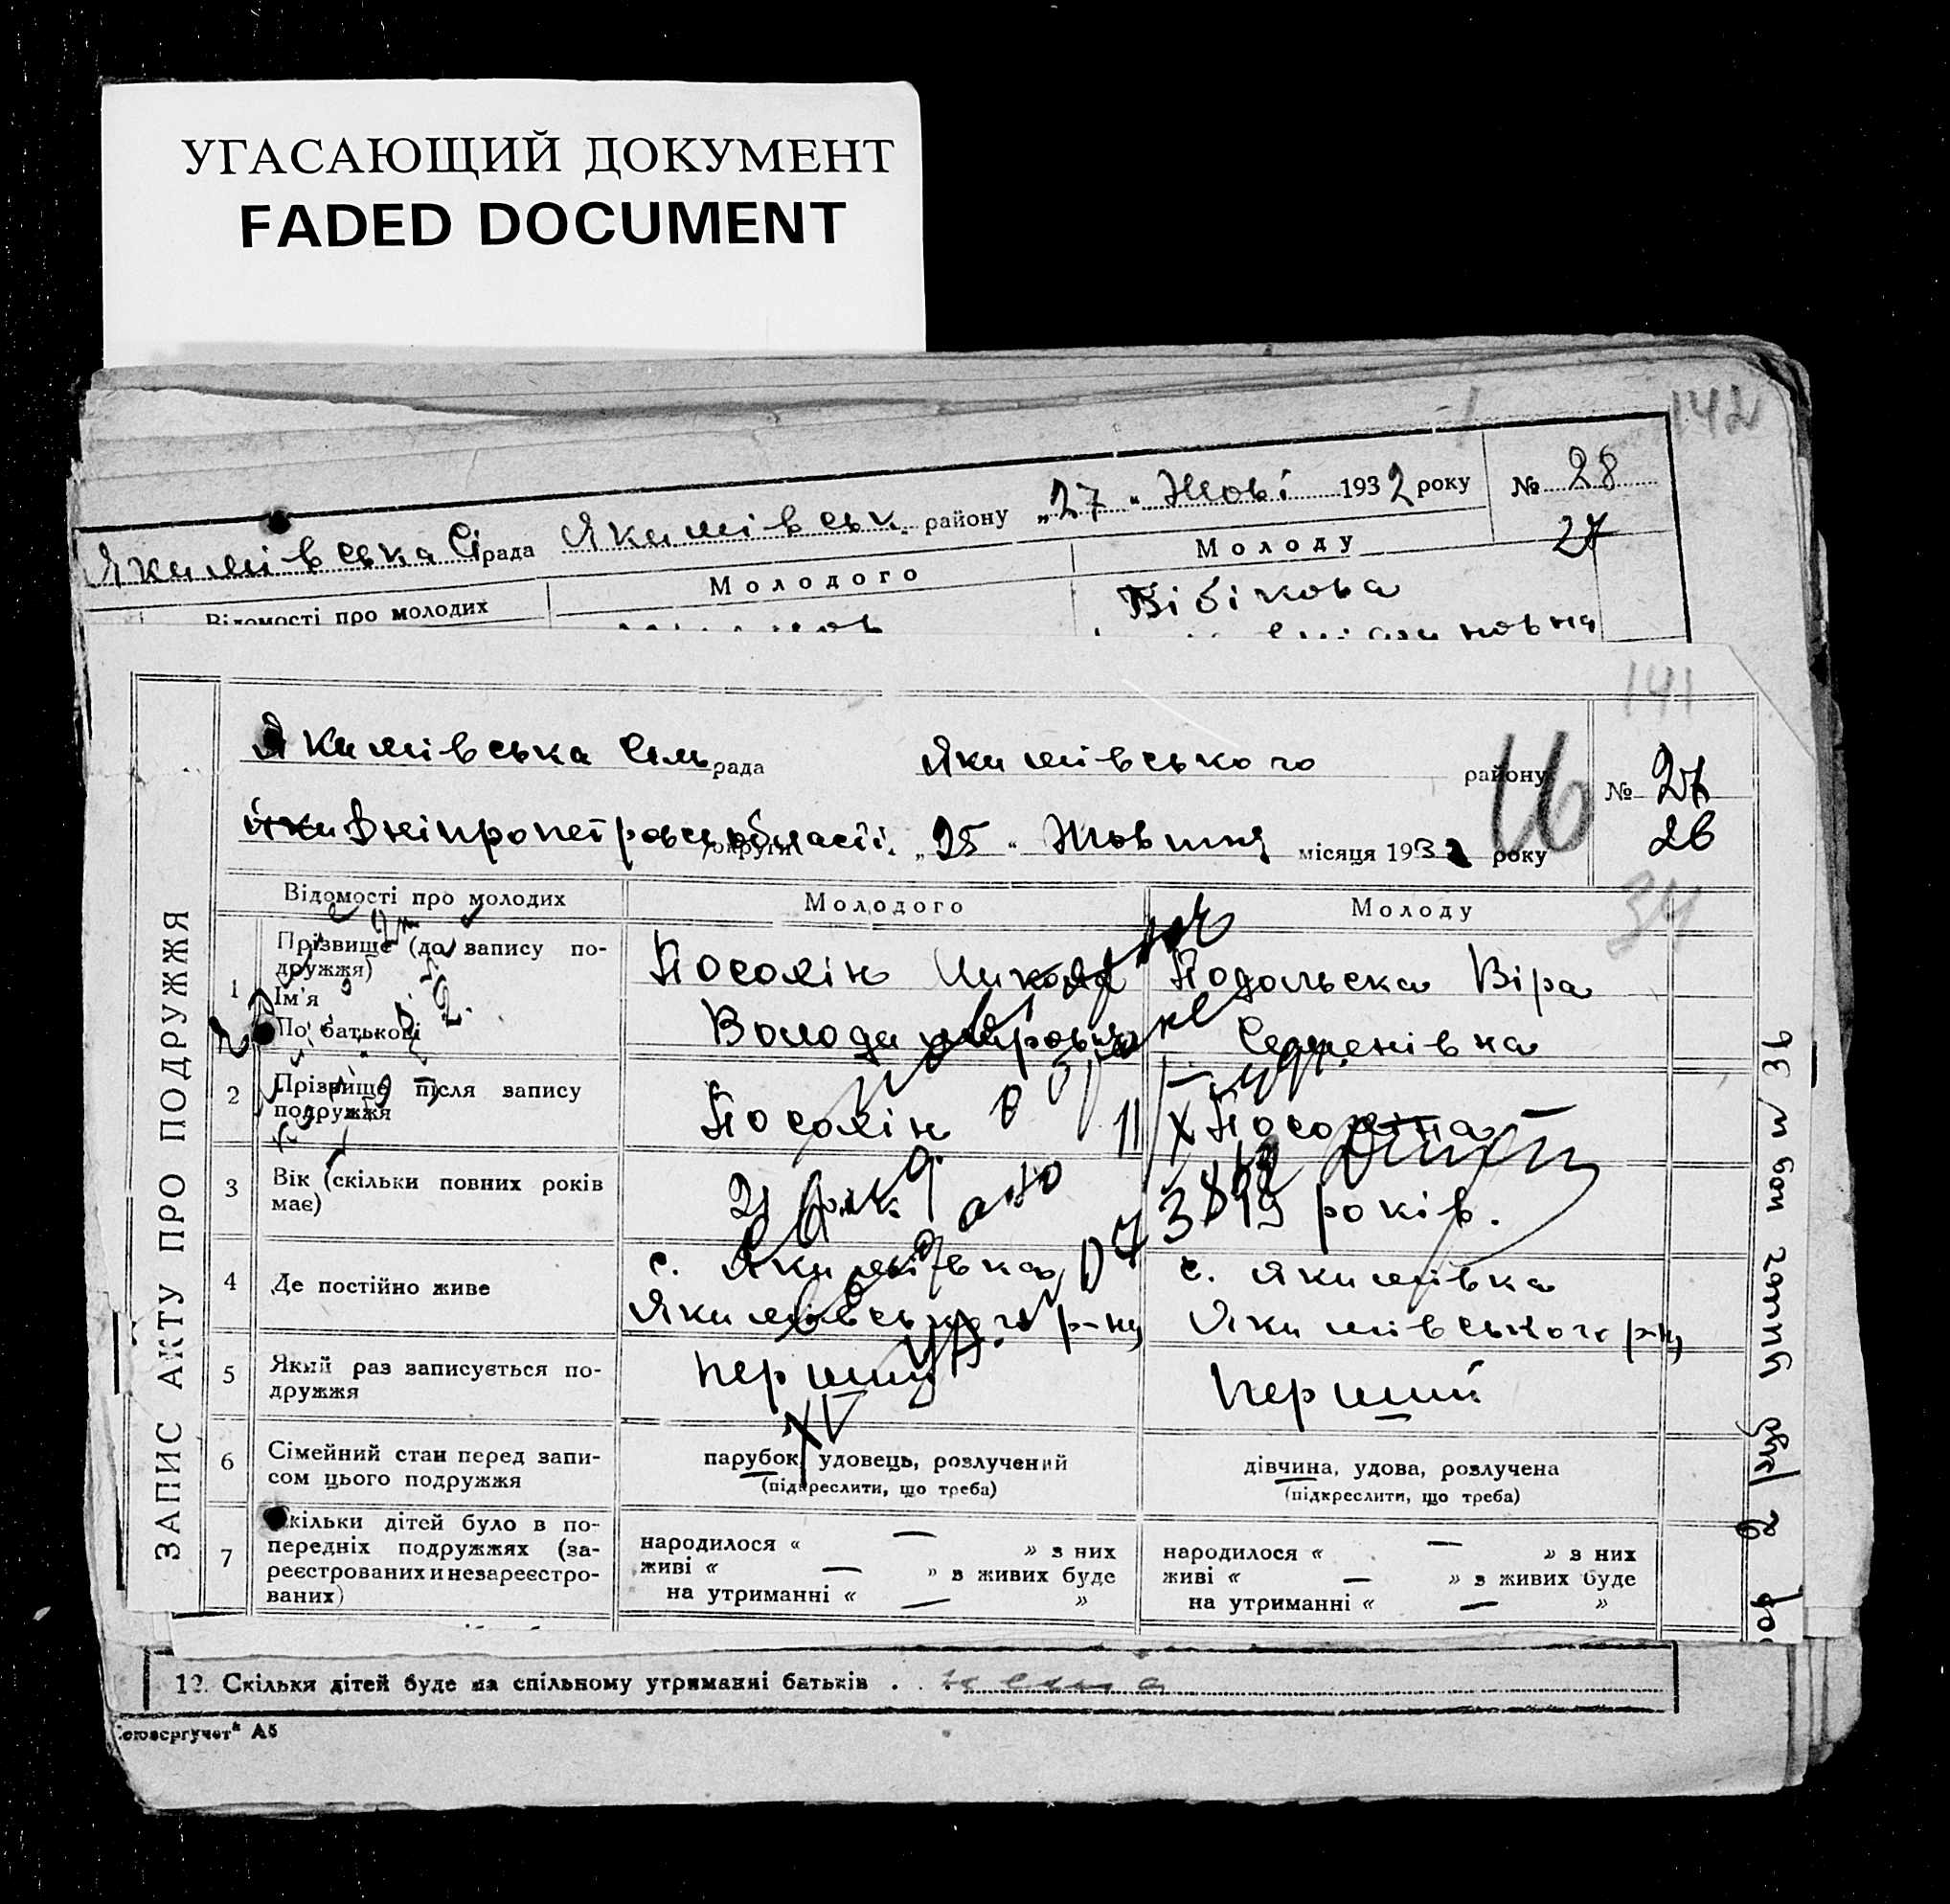 УГАСАЮЩИЙ ДОКУМЕНТ
FADED DOCUMENT
142
Якимівська Сірада Якимівськ. району „27“ Жові 1932 року № 28
27
Відомості про молодих Молодого Молоду
Бібікова
141
Якимівська Сільрада Якимівського району № 27
Дніпропетровськ області. округи „25“ Жовтня місяця 1932 року 26
16
34
ЗАПИС АКТУ ПРО ПОДРУЖЖЯ
Відомості про молодих Молодого Молоду
1 Прізвище (до запису подружжя)
Ім'я
По батькові
Посолін Микола
Володимирович
Подольска Віра
Семенівна
2 Прізвище після запису
подружжя
Посолін
Посоліна
3 Вік (скільки повних років
має)
21 рік
19 років.
4 Де постійно живе
с. Якимівка
Якимівського р-ну
с. Якимівка
Якимівського р-ну
5 Який раз записується по-
дружжя
перший
перший
6 Сімейний стан перед запи-
сом цього подружжя
парубок, удовець, розлучений
(підкреслити, що треба)
дівчина, удова, розлучена
(підкреслити, що треба)
7 Скільки дітей було в по-
передніх подружжях (за-
реєстрованих и незареєстро-
ваних)
народилося « — » з них
живі « — » в живих буде
на утриманні « — »
народилося « — » з них
живі « — » в живих буде
на утриманні « — »
12. Скільки дітей буде на спільному утриманні батьків . . нема
оюзоргучет" А5